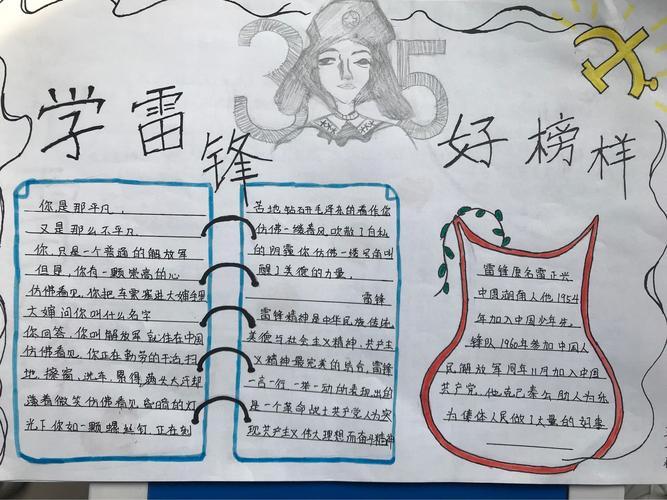 3 5
学雷锋
好榜样
你是那平凡，
又是那么不平凡
你，只是一个普通的解放军
但是，你有一颗崇高的心
仿佛看见，你把车票塞进大婶手里
大婶问你叫什么名字
你回答，你叫解放军就住在中国
仿佛看见，你正在勤劳的干活，扫
地、擦窗、洗车，累得满头大汗却
蓬着微笑仿佛看见昏暗的灯
光下你如一颗螺丝钉，正在刻
苦地钻研毛泽东的著作你
仿佛一缕春风吹散了自私
的阴霾你仿佛一缕号角叫
醒了美德的力量，
雷锋
雷锋精神是中华民族传统
美德与社会主义精神、共产主
义精神最完美的结合，雷锋
一言一行、一举一动所表现出的
是一个革命战士共产党人为实
现共产主义伟大理想而奋斗精神
雷锋原名雷正兴
中国湖南人他1954
年加入中国少年先
锋队1960年参加中国人
民解放军 同年11月加入中国
共产党，他克己奉公 助人为乐
为集体人民做了大量的好事